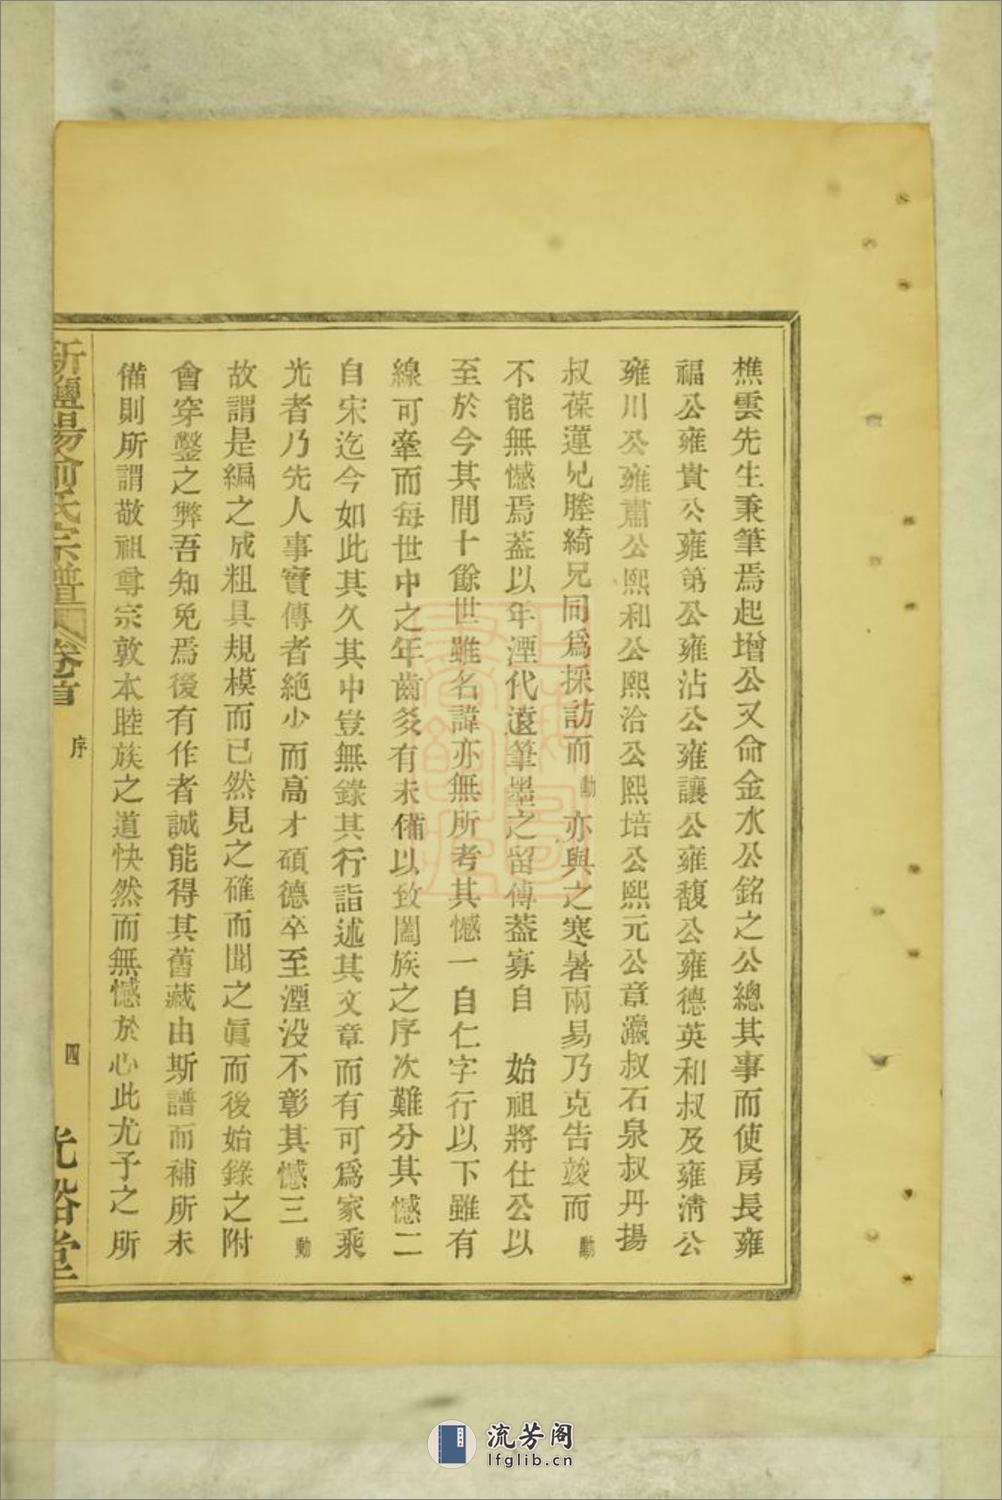 樵雲先生秉筆焉起增公又命金水公銘之公總其事而使房長雍
福公雍貴公雍第公雍沾公雍讓公雍馥公雍德英和叔及雍清公
雍川公雍肅公熙和公熙洽公熙培公熙元公章瀛叔石泉叔丹揚
叔葆蓮兄塍綺兄同爲採訪而勳亦與之寒暑兩易乃克告竣而勳
不能無憾焉葢以年湮代遠筆墨之留傳葢寡自 始祖將仕公以
至於今其間十餘世雖名諱亦無所考其憾一自仁字行以下雖有
線可牽而每世中之年齒爻有未備以致闔族之序次難分其憾二
自宋迄今如此其久其中豈無錄其行詣述其文章而有可爲家乘
光者乃先人事實傳者絶少而高才碩德卒至湮没不彰其憾三勳
故謂是編之成粗具規模而已然見之確而聞之眞而後始錄之附
會穿鑿之弊吾知免焉後有作者誠能得其舊藏由斯譜而補所未
備則所謂敬祖尊宗敦本睦族之道快然而無憾於心此尤予之所
新鹽場俞氏宗譜 卷首 序 四 光裕堂
流芳阁
lfglib.cn